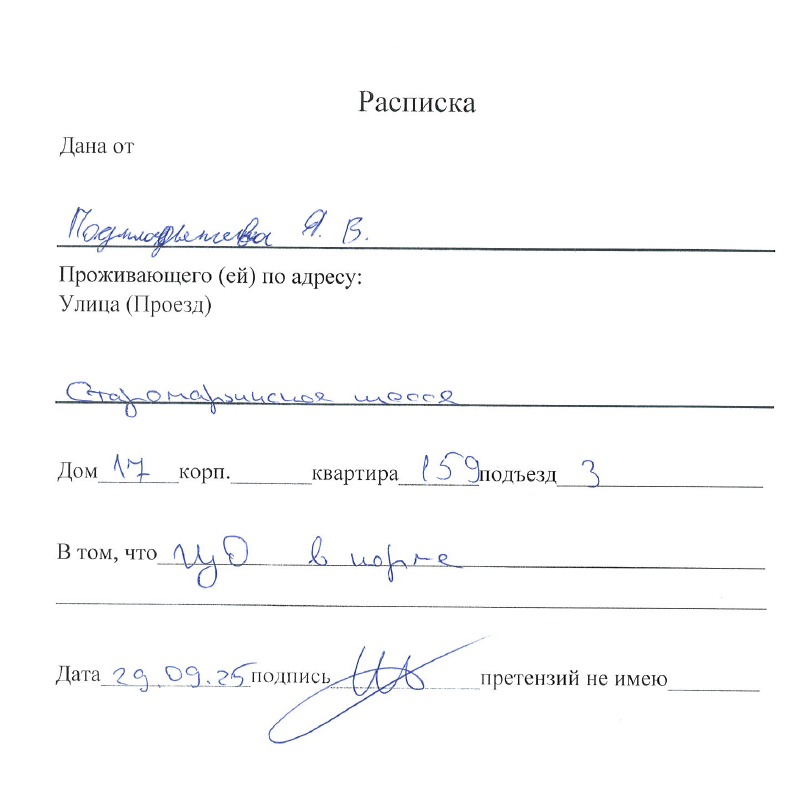 Расписка
Дана от
Я. В.
Проживающего (ей) по адресу:
Улица (Проезд)
Старомарьинское шоссе
Дом 17 корп. квартира 159 подъезд 3
В том, что ИЦО в норме
Дата 29.09.25 подпись претензий не имею